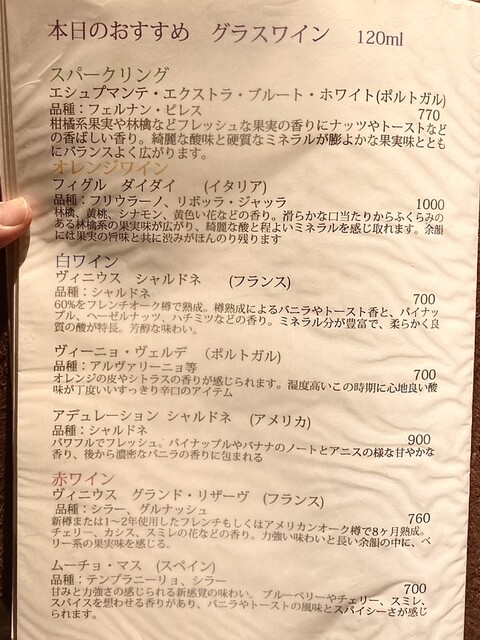 本日のおすすめ　グラスワイン　120ml
スパークリング
エシュプマンテ・エクストラ・ブルート・ホワイト(ポルトガル)
品種：フェルナン・ピレス　770
柑橘系果実や林檎などフレッシュな果実の香りにナッツやトーストなど
の香ばしい香り。綺麗な酸味と硬質なミネラルが膨よかな果実味ととも
にバランスよく広がります。
オレンジワイン
フィグル　ダイダイ　　(イタリア)
品種：フリウラーノ、リボッラ・ジャッラ　1000
林檎、黄桃、シナモン、黄色い花などの香り。滑らかな口当たりからふくらみの
ある林檎系の果実味が広がり、綺麗な酸と程よいミネラルを感じ取れます。余韻
には果実の旨味と共に渋みがほんのり残ります
白ワイン
ヴィニウス　シャルドネ　　(フランス)
品種：シャルドネ　700
60%をフレンチオーク樽で熟成。樽熟成によるバニラやトースト香と、パイナッ
プル、ヘーゼルナッツ、ハチミツなどの香り。ミネラル分が豊富で、柔らかく良
質の酸が特長。芳醇な味わい。
ヴィーニョ・ヴェルデ　（ポルトガル）
品種：アルヴァリーニョ等　700
オレンジの皮やシトラスの香りが感じられます。湿度高いこの時期に心地良い酸
味が丁度いいすっきり辛口のアイテム
アデュレーション シャルドネ　（アメリカ）
品種：シャルドネ　900
パワフルでフレッシュ。パイナップルやバナナのノートとアニスの様な甘やかな
香り、後から濃密なバニラの香りに包まれる
赤ワイン
ヴィニウス　グランド・リザーヴ　(フランス)
品種：シラー、グルナッシュ　760
新樽または1〜2年使用したフレンチもしくはアメリカンオーク樽で8ヶ月熟成。
チェリー、カシス、スミレの花などの香り。力強い味わいと長い余韻の中に、ベ
リー系の果実味を感じる。
ムーチョ・マス　（スペイン）
品種：テンプラニーリョ、シラー　700
甘みと力強さの感じられる新感覚の味わい。ブルーベリーやチェリー、スミレ、
スパイスを想わせる香りがあり、バニラやトーストの風味とスパイシーさが感じ
られます。